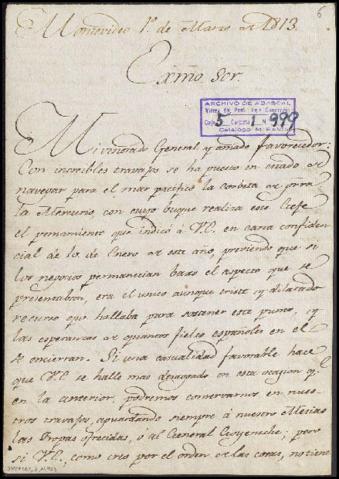 6
Montevideo 1º. de Marzo de 1813.
Exmo. Sor.
ARCHIVO DE ABASCAL
5 1 999
Mi venerado General y amado favorecedor:
Con increibles travajos se ha puesto en estado de
navegar para el mar pacifico la corbeta de
la Mercurio, con cuyo buque realiza este Gefe
el pensamiento que indicó á V.E. en carta confiden-
cial de 10. de Enero de este año, previendo que si
los negocios permanecian baxo el aspecto que se
presentaban, era el unico aunque triste y dilatado
recurso que hallaba para sostener este punto, y
las esperanzas de quantos fieles españoles en el
se encierran. Si una casualidad favorable hace
que V.E. se halle mas desaogado en esta ocasion qe.
en la anterior, podremos conservarnos en nues-
tros travajos, aguardando siempre á nuestro Mesias
las Tropas ofrecidas, o al General Goyeneche; pero
si V.E., como creo por el orden de las cosas, no tiene